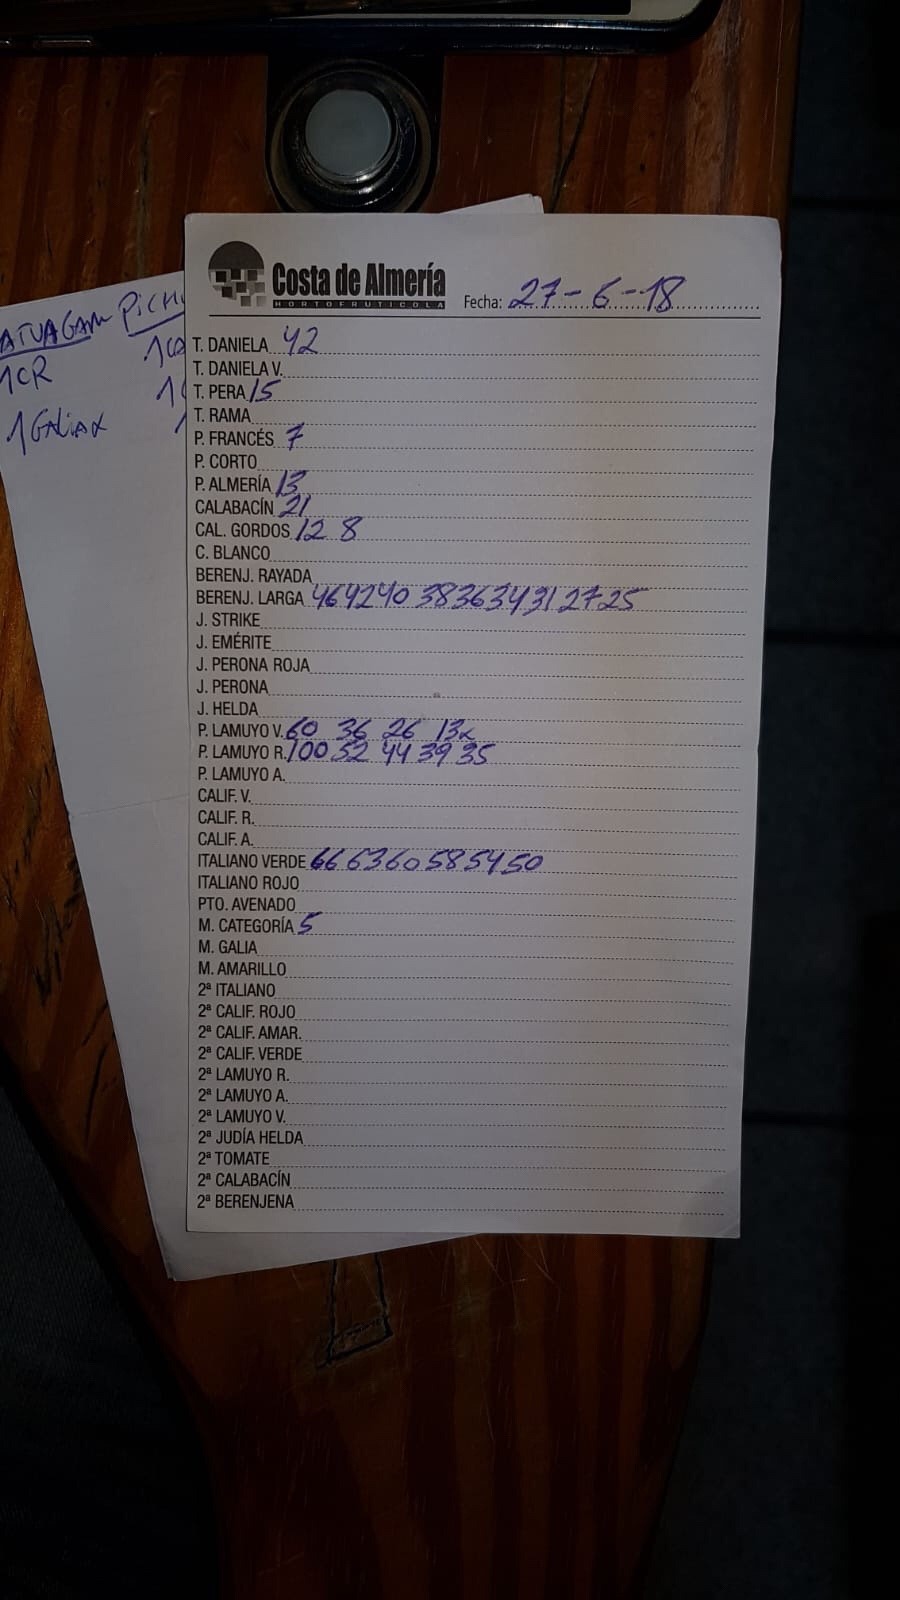 Costa de Almería
HORTOFRUTICOLA
Fecha: 27-6-18
T. DANIELA 42
T. DANIELA V.
T. PERA 15
T. RAMA
P. FRANCÉS 7
P. CORTO
P. ALMERÍA 13
CALABACÍN 21
CAL. GORDOS 12 8
C. BLANCO
BERENJ. RAYADA
BERENJ. LARGA 46 42 40 38 36 34 31 27 25
J. STRIKE
J. EMÉRITE
J. PERONA ROJA
J. PERONA
J. HELDA
P. LAMUYO V. 60 36 26 13x
P. LAMUYO R. 100 52 44 39 35
P. LAMUYO A.
CALIF. V.
CALIF. R.
CALIF. A.
ITALIANO VERDE 66 63 60 58 54 50
ITALIANO ROJO
PTO. AVENADO
M. CATEGORÍA 5
M. GALIA
M. AMARILLO
2ª ITALIANO
2ª CALIF. ROJO
2ª CALIF. AMAR.
2ª CALIF. VERDE
2ª LAMUYO R.
2ª LAMUYO A.
2ª LAMUYO V.
2ª JUDÍA HELDA
2ª TOMATE
2ª CALABACÍN
2ª BERENJENA
1CR